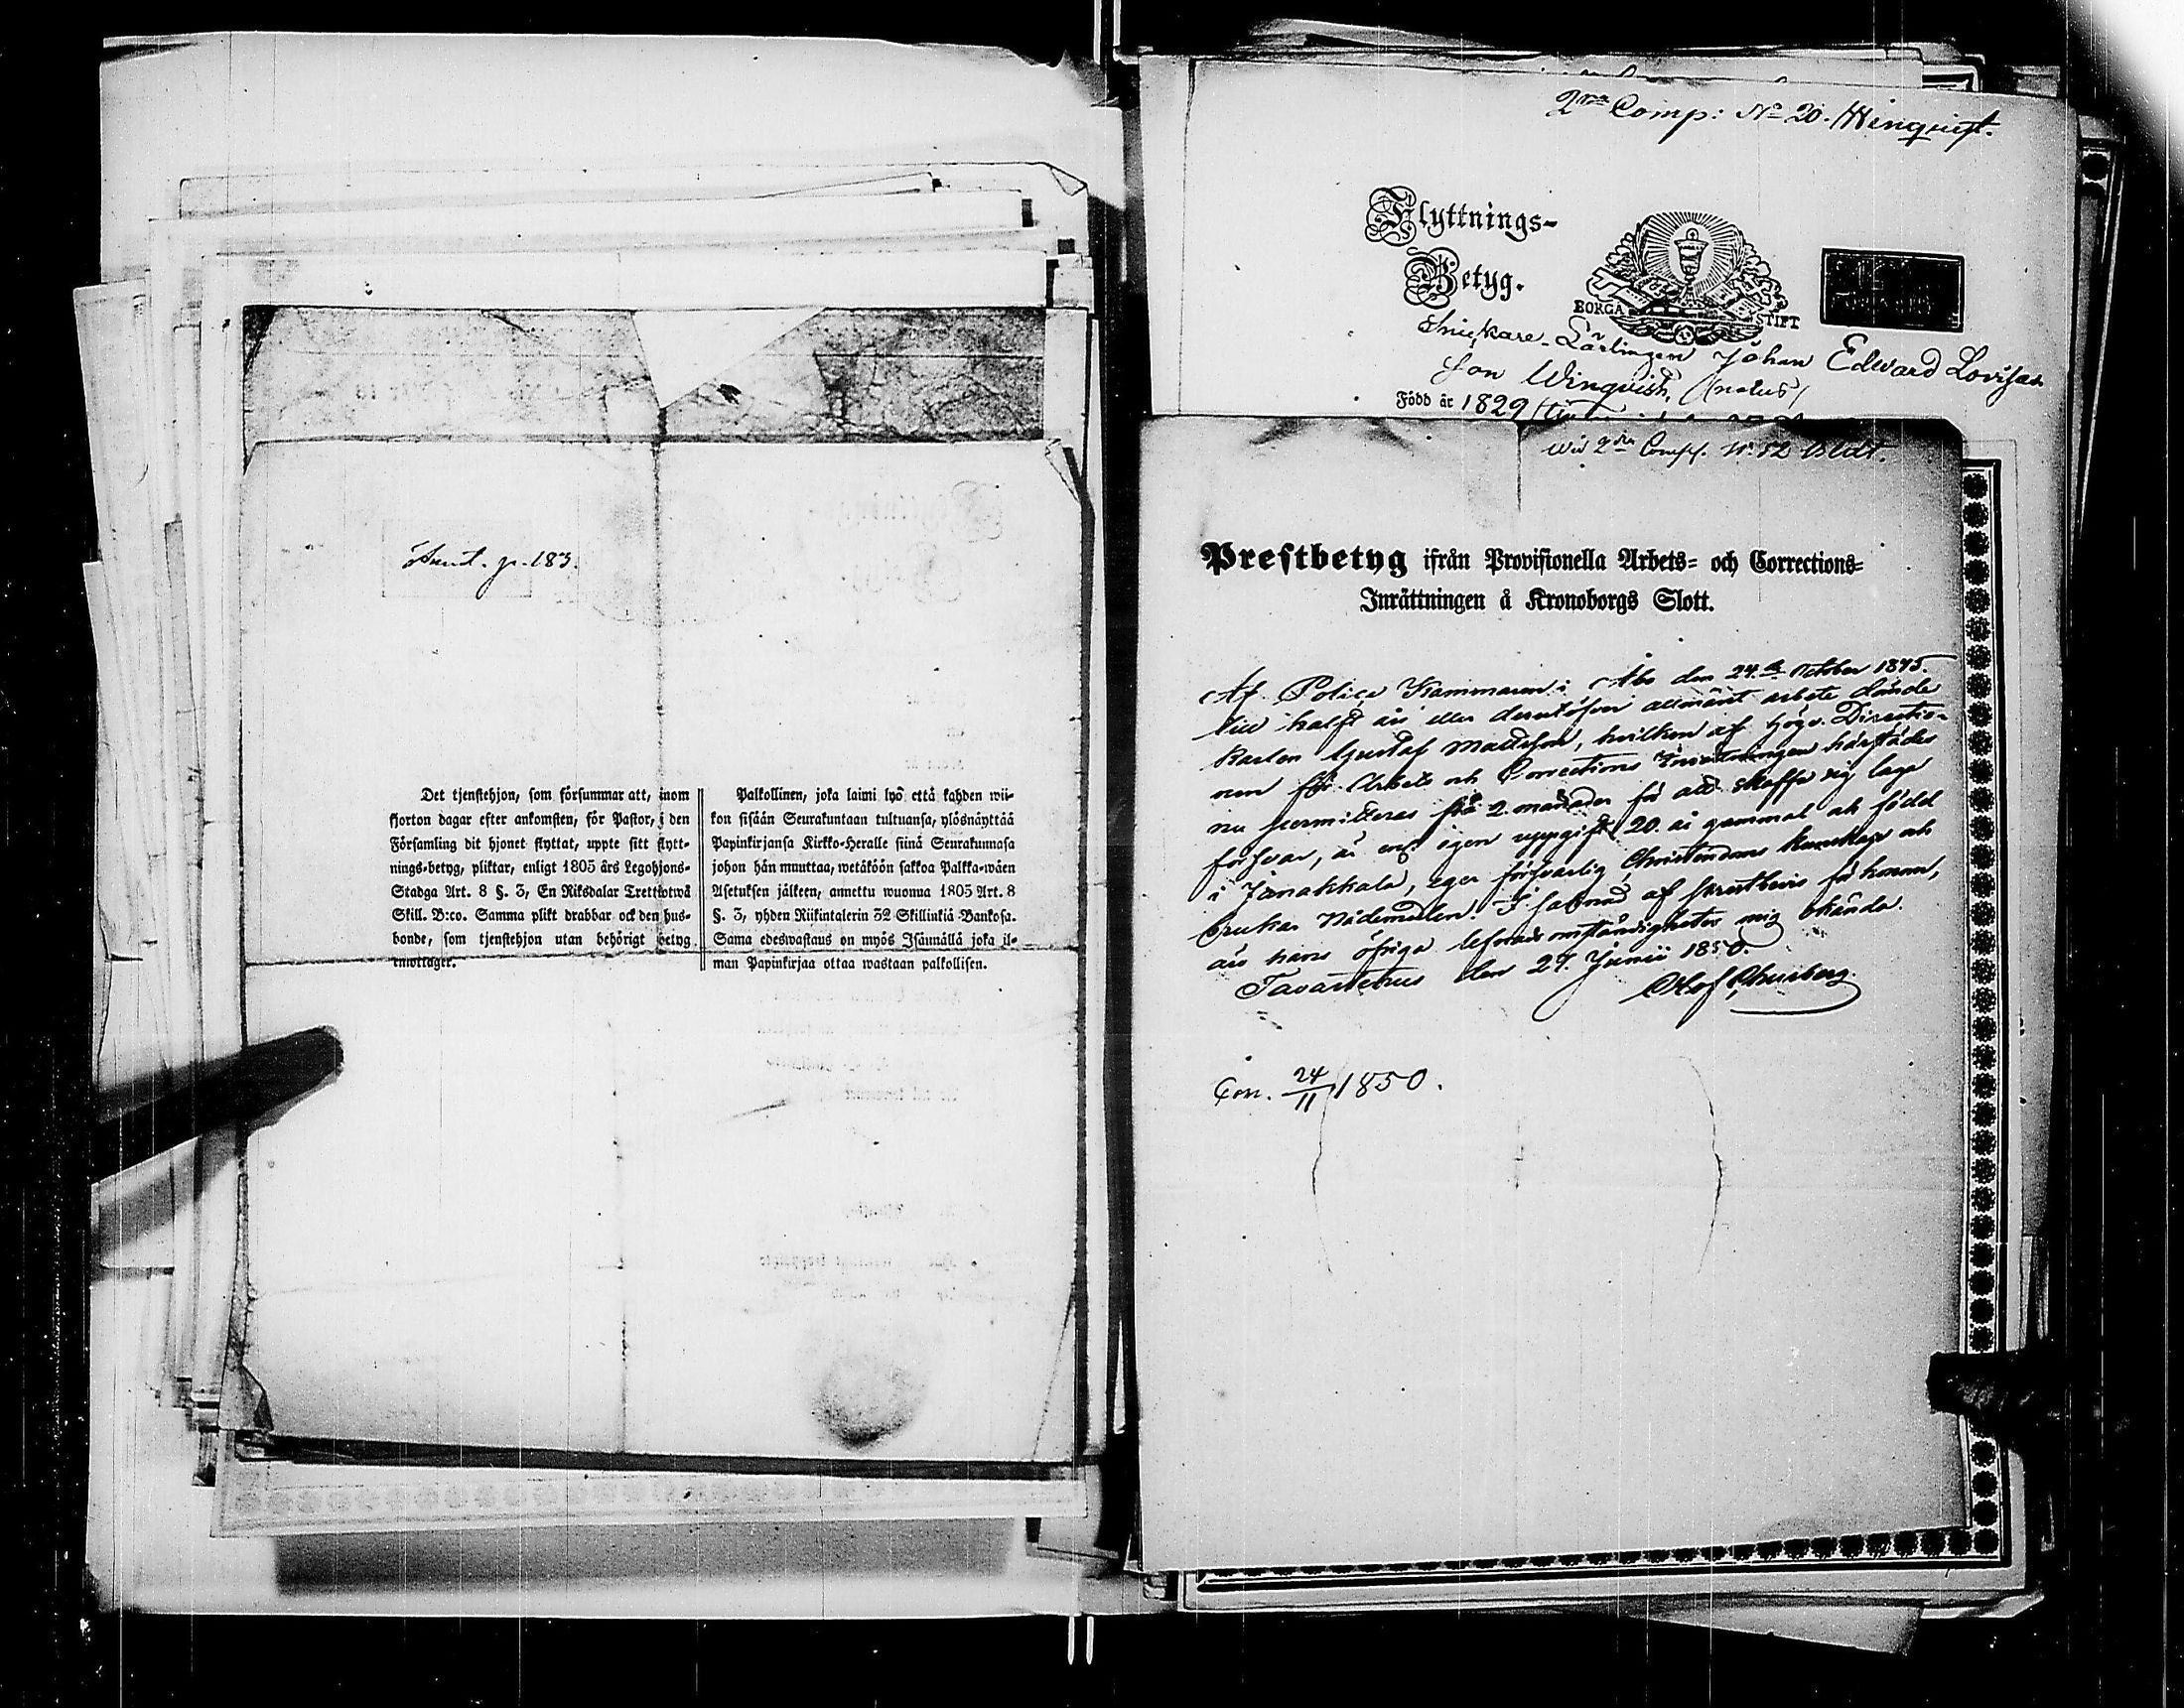 Det tjenstehjon, som försummar att, inom
fjorton dagar efter ankomsten, för Pastor, i den
Församling dit hjonet flyttat, uppte sitt flytt-
nings-betyg, pliktar, enligt 1805 års Legohjons-
Stadga Art. 8 §. 3, En Riksdalar Trettiotwå
Skill. B:co. Samma plikt drabbar ock den hus-
bonde, som tjenstehjon utan behörigt betyg
emottager.
Palkollinen, joka laimi lyö että kahden wii-
kon sisään Seurakuntaan tultuansa, ylösnäyttää
Papinkirjansa Kirkko-Heralle siinä Seurakunnasa
johon hän muuttaa, wetäköön sakkoa Palkka-wäen
Asetuksen jälkeen, annettu wuonna 1805 Art. 8
§. 3, yhden Riikintalerin 32 Skillinkiä Bankosa.
Sama edeswastaus on myös Isäunällä joka il-
man Papinkirjaa ottaa wastaan palkollisen.
2dra Comp: No 20. Winquist.
Flyttnings-
Betyg.
BORGA STIFT
Snickare-Lärlingen Johan Edward Lovisas
Son Winquist, (natus)
Född år 1829
wid 2dra Comp. No. 52
Prestbetyg ifrån Provisionella Arbets- och Corrections-
Inrättningen å Kronoborgs Slott.
Af Police Kammaren i Åbo den 24.de October 1845.
till halft års eller derutöfver allmänt arbete dömde
Karlen Gustaf Mattsson, hvilken af Högv. Directio-
nen för Arbets och Corrections Inrättningen härstädes
nu permitteras på 2. månader för att skaffa sig laga
försvar, är enl. egen uppgift 20. år gammal och född
i Janakkala, eger försvarlig Christendoms kunskap och
brukar Nådemedlen. I saknad af prestbevis för honom,
äro hans öfriga lefnads omständigheter mig okända.
Tavastehus den 27. Junii 1850.
Olof
Con. 24/11 1850.